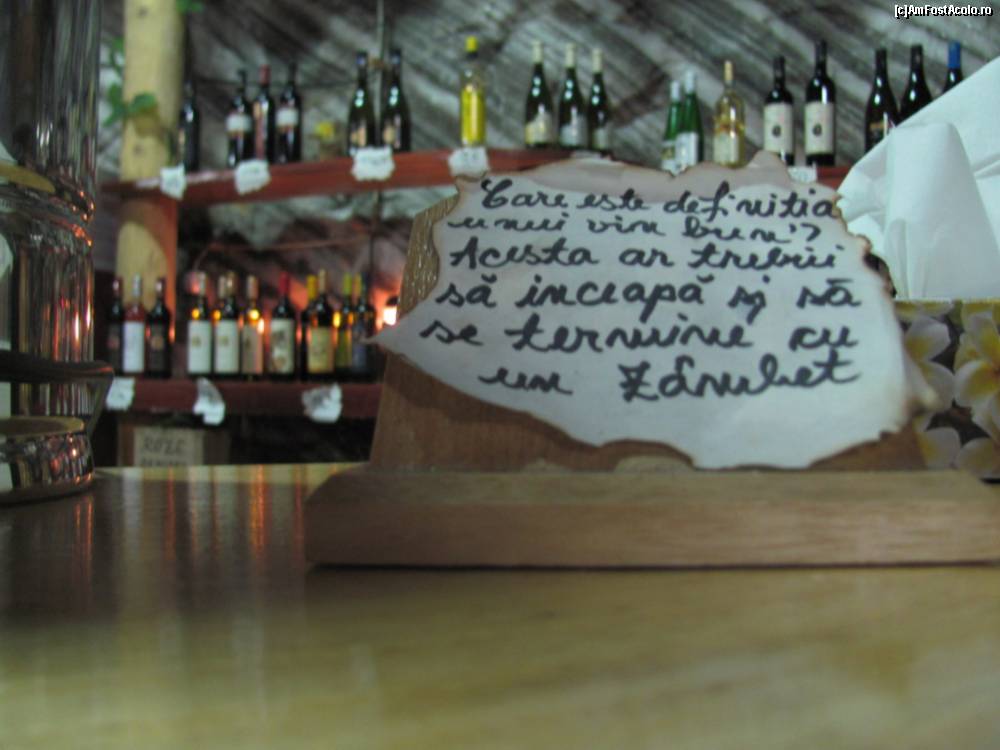 [c]AmFostAcolo.ro
Care este definitia
unui vin bun?
Acesta ar trebui
să inceapă și să
se termine cu
un Zâmbet
ROZE